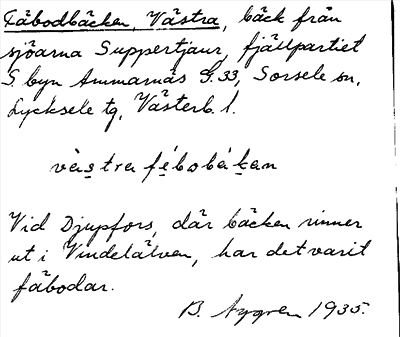 Fäbodbäcken, Västra, bäck från
sjöarna Suppertjaur, fjällpartiet
S. byn Ammarnäs G.33, Sorsele sn,
Lycksele tg, Västerb. l.
västra fębobäkan
Vid Djupfors, där bäcken rinner
ut i Vindelälven, har det varit
fäbodar.
B. Nygren 1935.